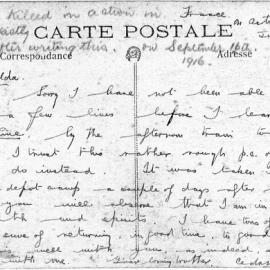 Killed in action in France
exactly
after writing this. on September 16th
1916.
CARTE POSTALE
Correspondance Adresse
Sorry I have not been able
a few lines before I leave
by the afternoon train to
I trust this rather rough p.c.
do instead. It was taken
depot camp a couple of days after
you will observe that I am in
and spirits I have
of returning in good time to good
is well with you as indeed
with me. Your loving brother